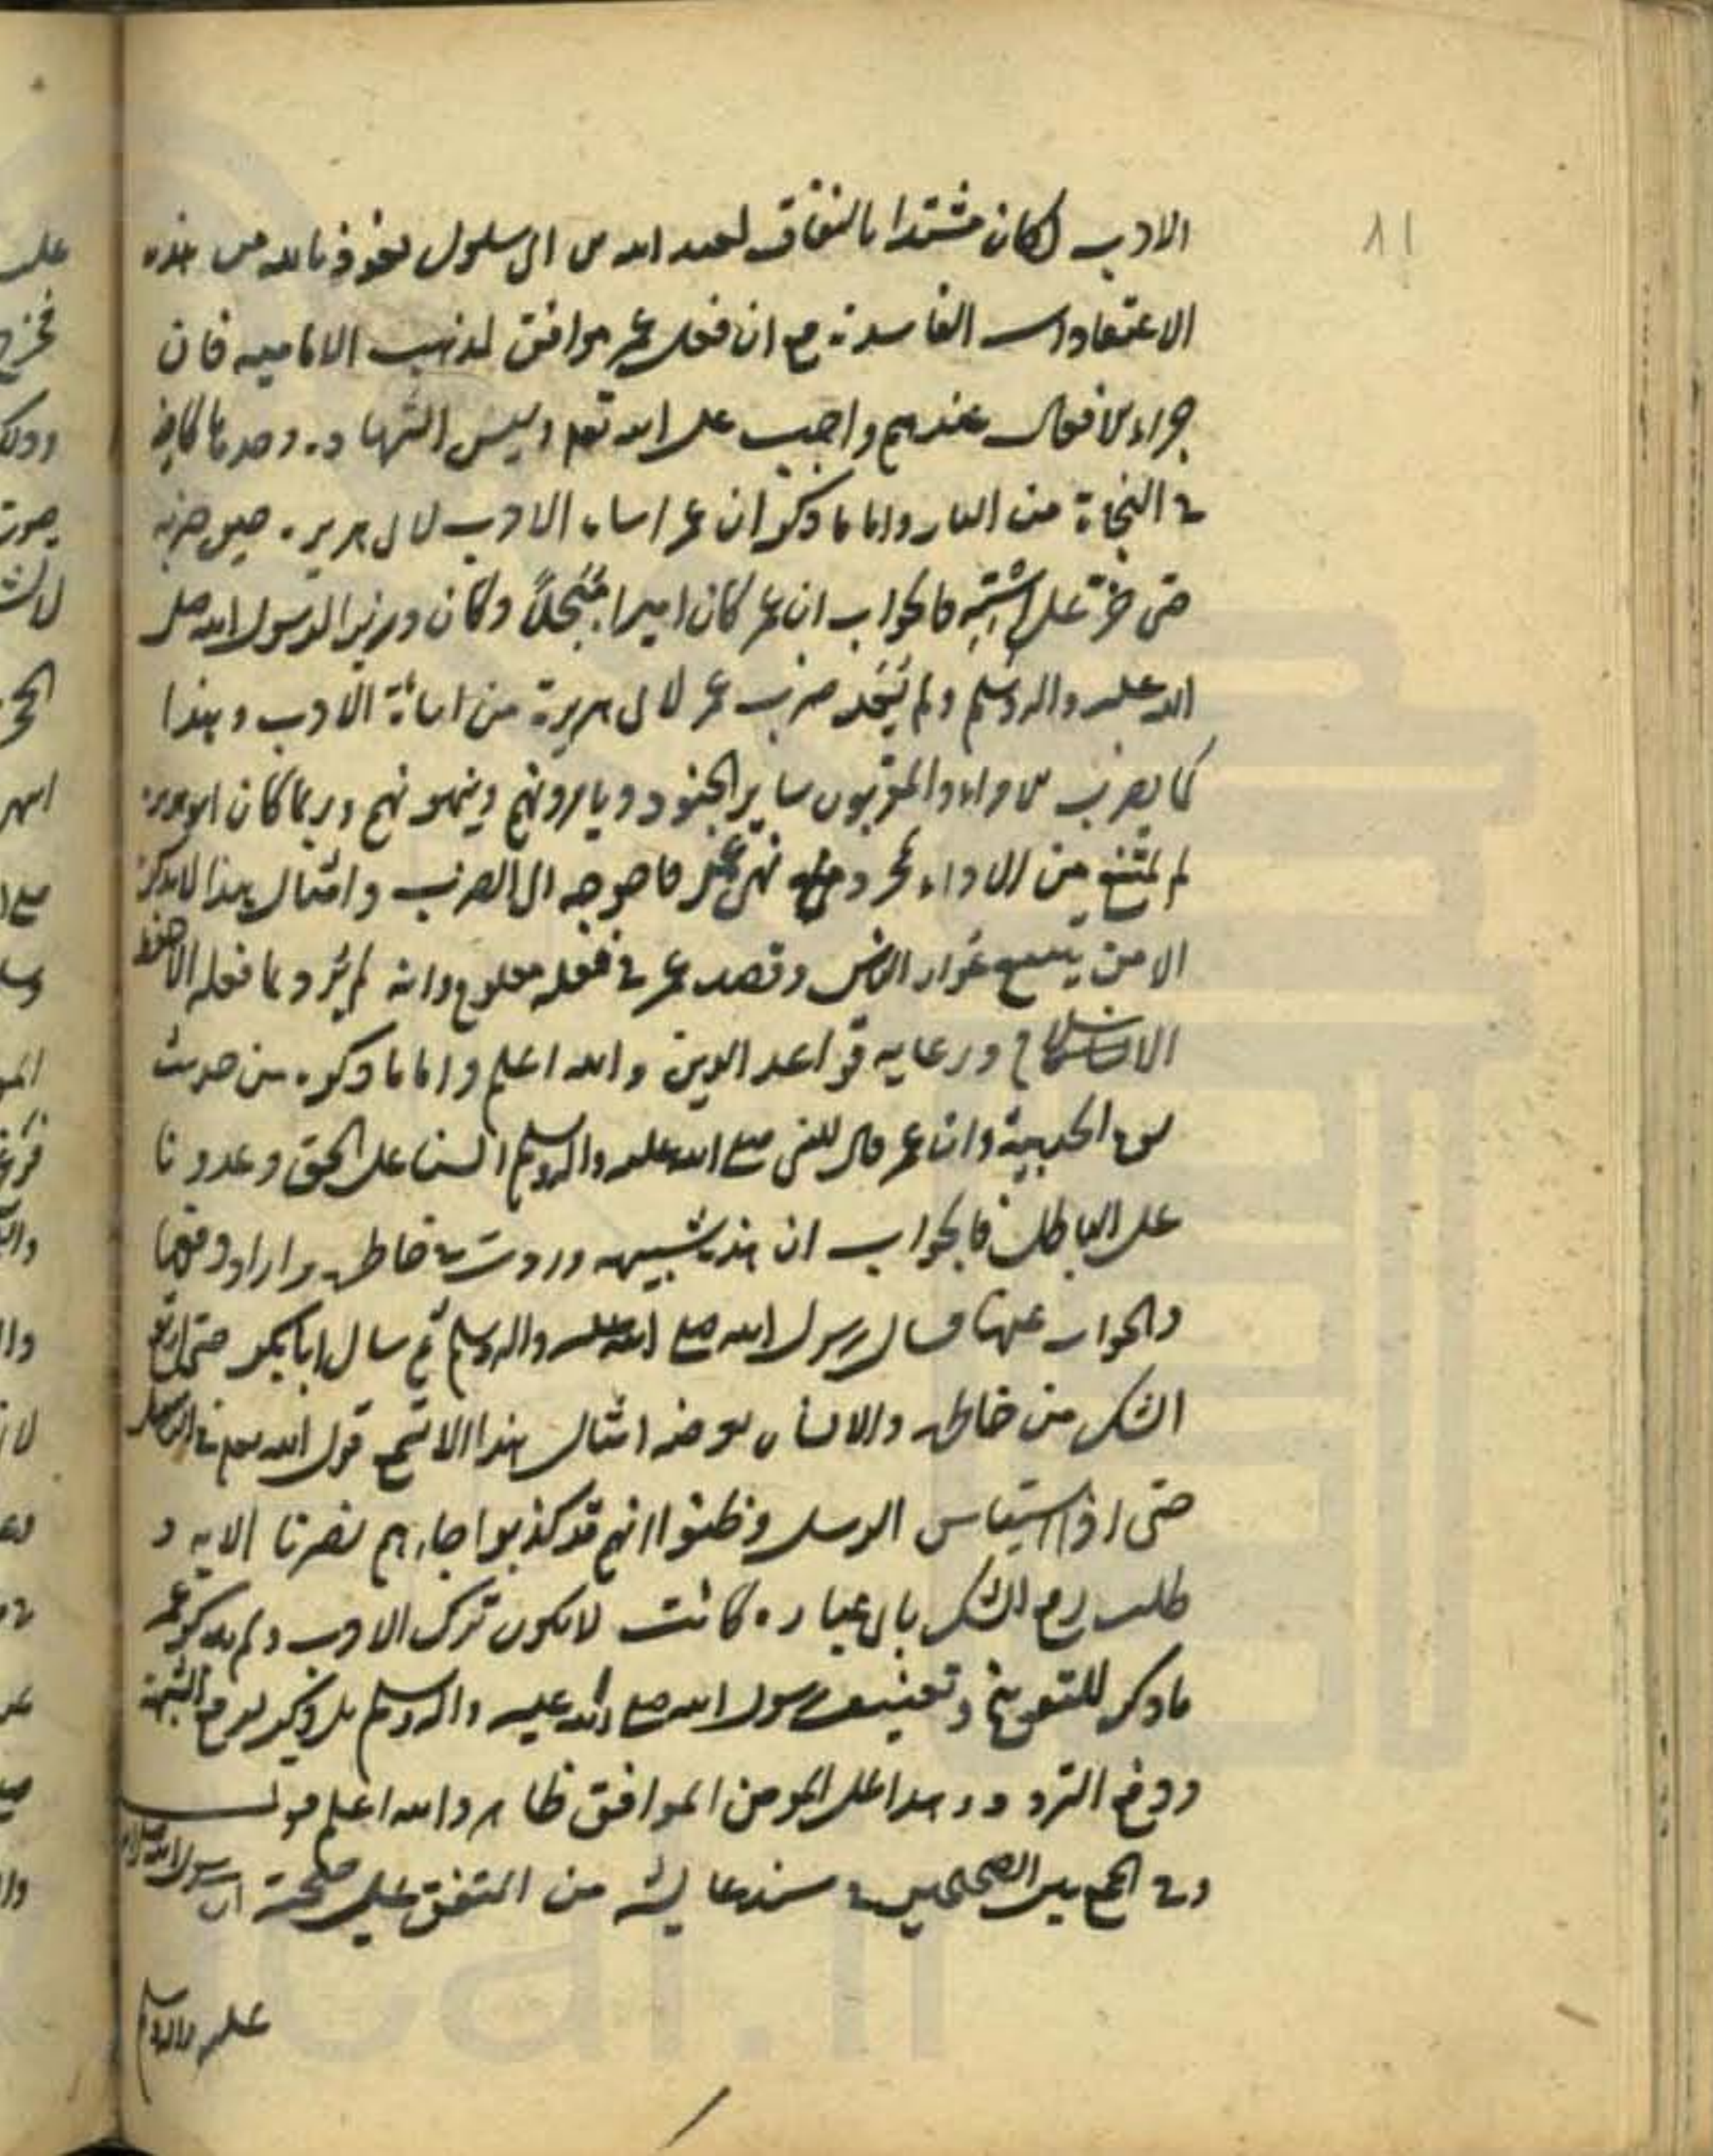 ٨١
الادب لكان مشتدا بالنفاق لعبد الله بن ابى سلول نعوذ بالله من هذه
الاعتقادات الفاسدة مع ان فعل عمر موافق لمذهب الامامیه فان
جزاء الافعال عندهم واجب على الله تعم وليس الشهادة وحدها كافية
فی النجاة من النار واما ما ذكر ان عمر اساء الادب لابى هريرة حين ضربه
حتى خر على استه فالجواب ان عمر كان اميرا مبجلاً وكان وزيرا لرسول الله صلى
الله عليه واله وسلم ولم يُعَد ضرب عمر لابى هريرة من اساءة الادب وهذا
كما يضرب الامراء والمقربون ساير الجنود ويامرونهم وينهونهم وربما كان ابو هريرة
لم يمتنع من الاداء بمجرد نهى عمر فاحوجه الى الضرب وامثال هذا لا يذكره
الا من يتبع عوار الناس وقصد عمر فی فعله معلوم وانه لم يرد بما فعله الا حفظ
الاسلام ورعاية قواعد الدين والله اعلم واما ما ذكره من حديث
يوم الحديبية وان عمر قال للنبى صلى الله عليه واله وسلم السنا على الحق وعدونا
على الباطل فالجواب ان هذه شبهه وردت فی خاطره واراد دفعها
والجواب عنها فسال رسول الله صلى الله عليه واله وسلم ثم سال ابا بكر حتى ارتفع
الشك من خاطره والانسان يعرضه امثال هذا الا تسمع قول الله تعم فی الرسل
حتى اذا استيأس الرسل وظنوا انهم قد كذبوا جاءهم نصرنا الايه و
طلب رفع الشك باى عبارة كانت لا يكون ترك الادب ولم يذكر عمر
ما ذكر للتعريض وتعنيف رسول الله صلى الله عليه واله وسلم بل ذكر لرفع الشبهة
ودفع التردد وهذا على المومن الموافق ظاهر والله اعلم قولـــه
وفى الجمع بين الصحيحين فی مسند عايشه من المتفق على صحته ان رسول الله صلى الله
عليه واله وسلم